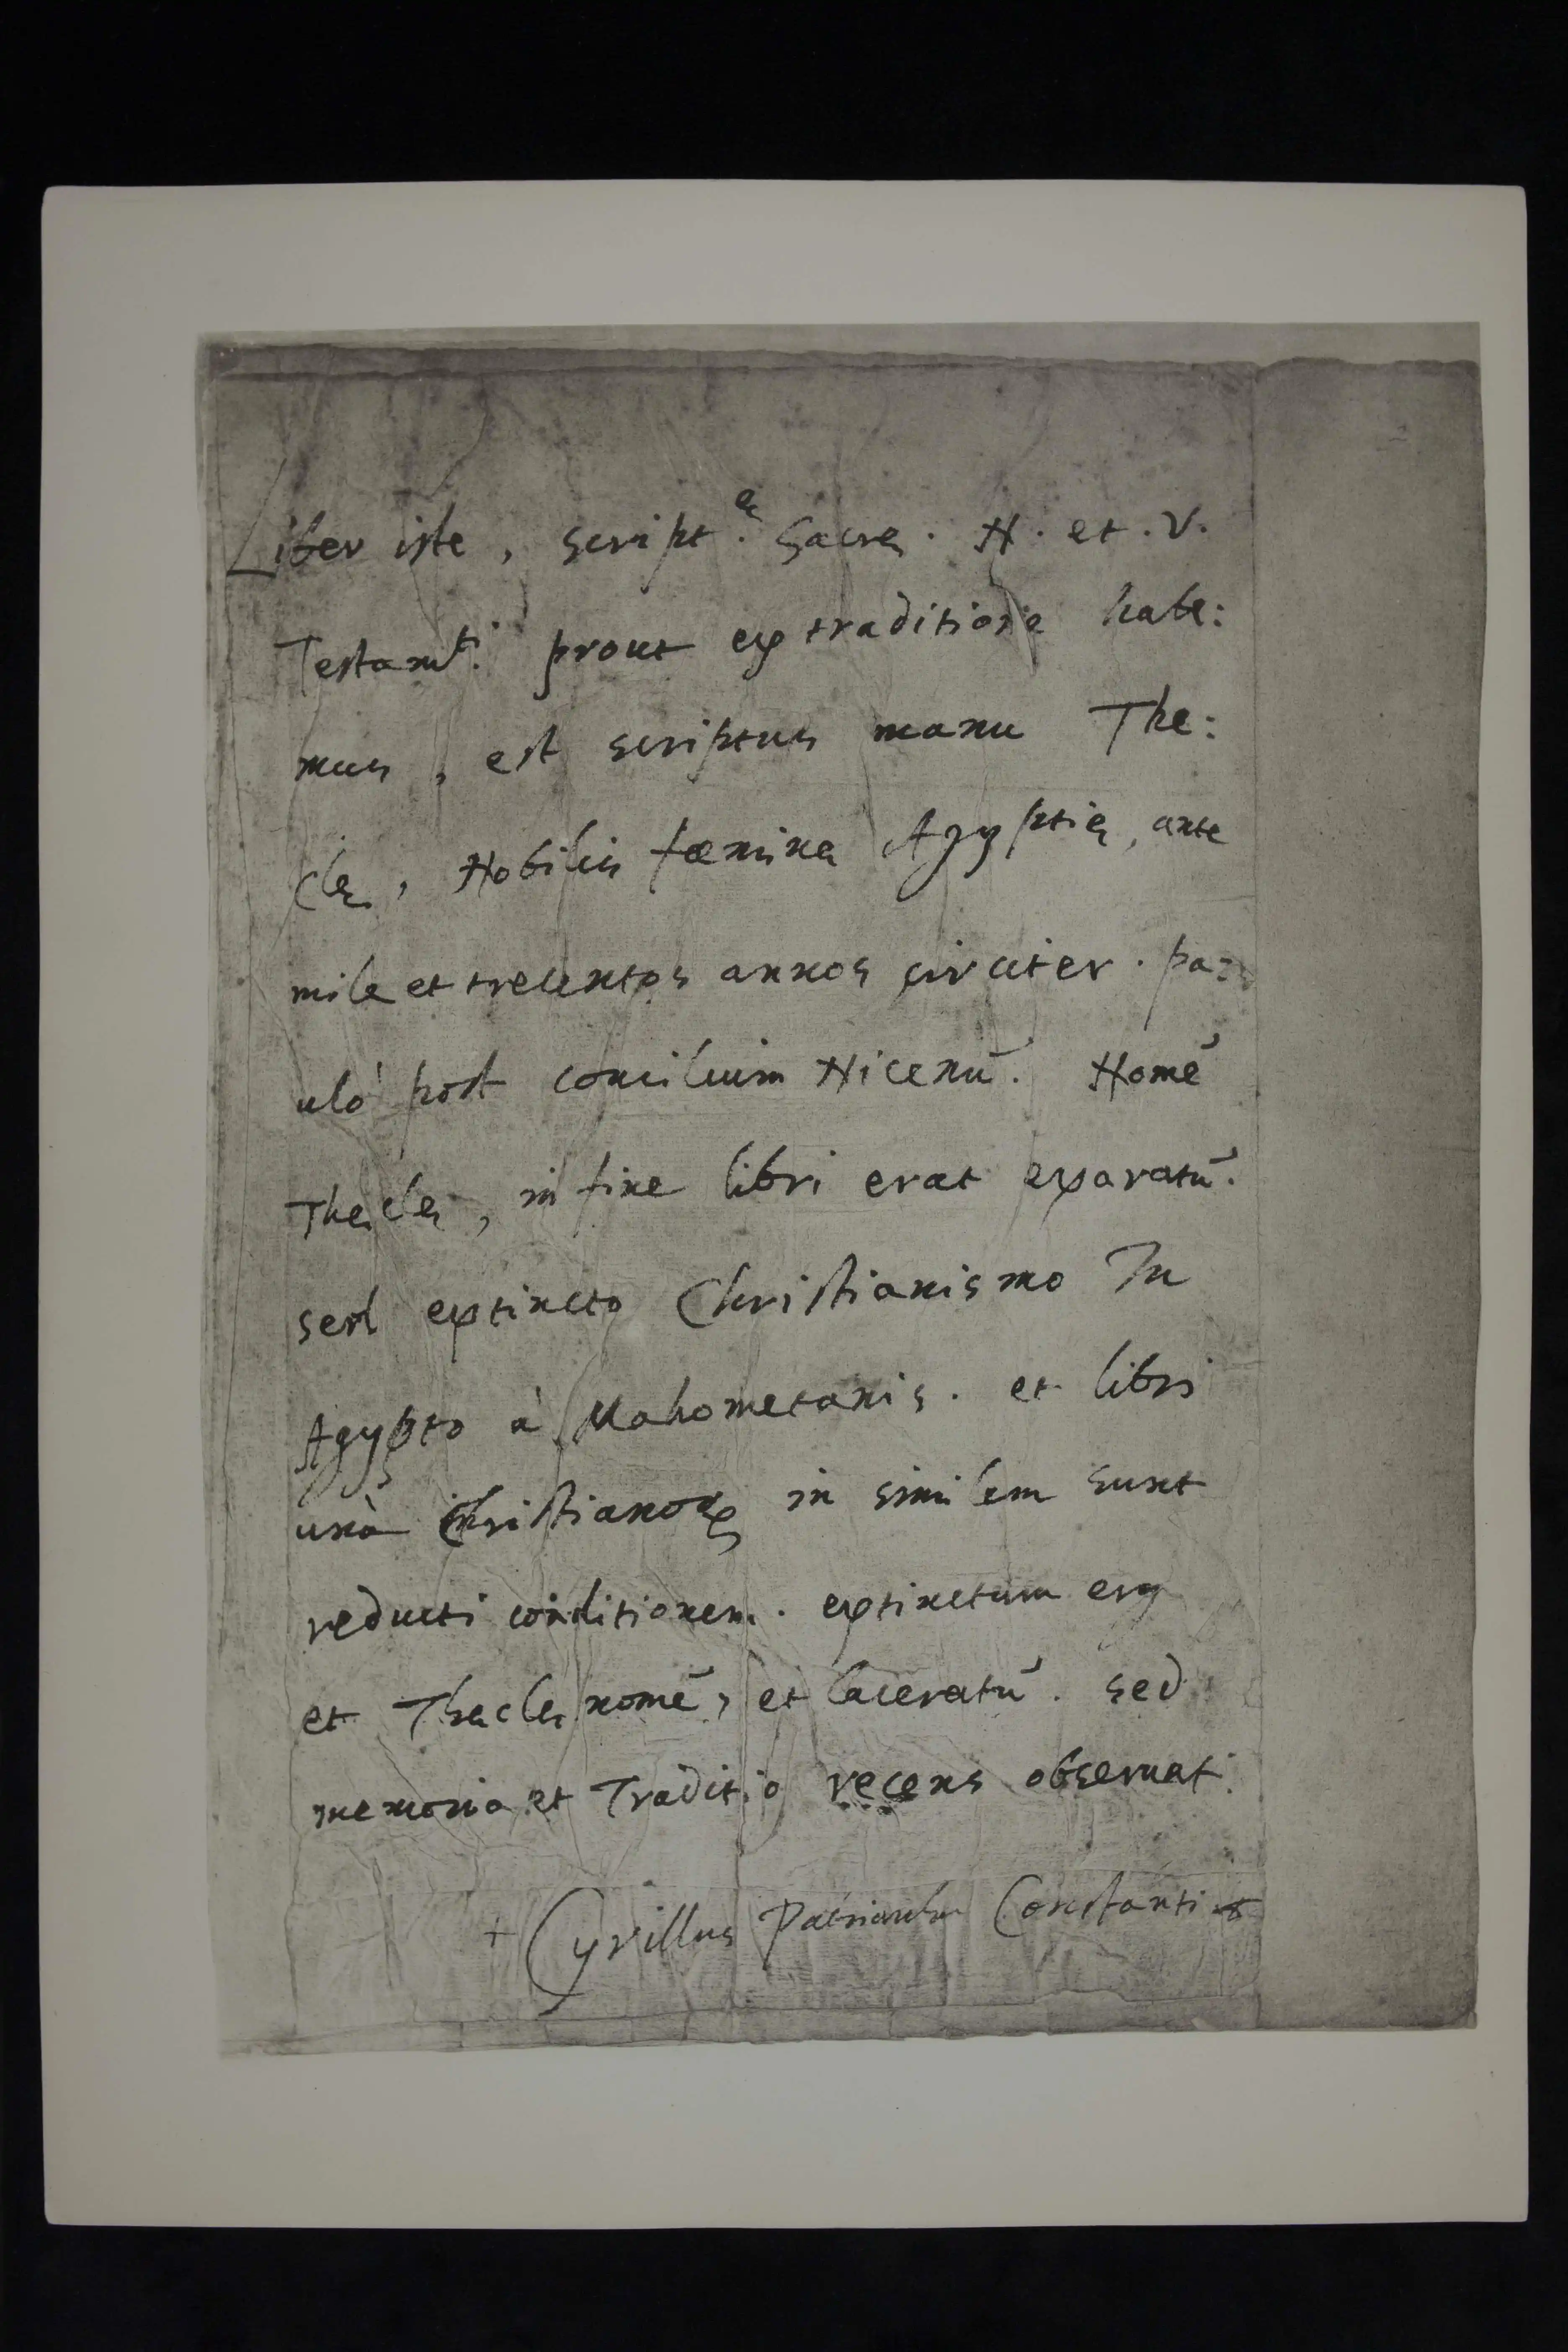 Liber iste, script.æ Sacræ. N. et. V.
Testamti. prout ex traditione habe:
mus, est scriptus manu The:
clæ, Nobilis fæminæ Ægyptiæ, ante
mile et trecentos annos circiter. pa:
uló post concilium Nicenū. Nomē
Theclæ, in fine libri erat exaratū.
sed extincto Christianismo In
Ægypto à Mahometanis. et libri
unà Christianoꝝ in similem sunt
reducti conditionem. extinctum erg
et Theclæ nomē, et laceratū. sed
memoria et Traditio recens observat.
+ Cyrillus Patriarcha Constanti